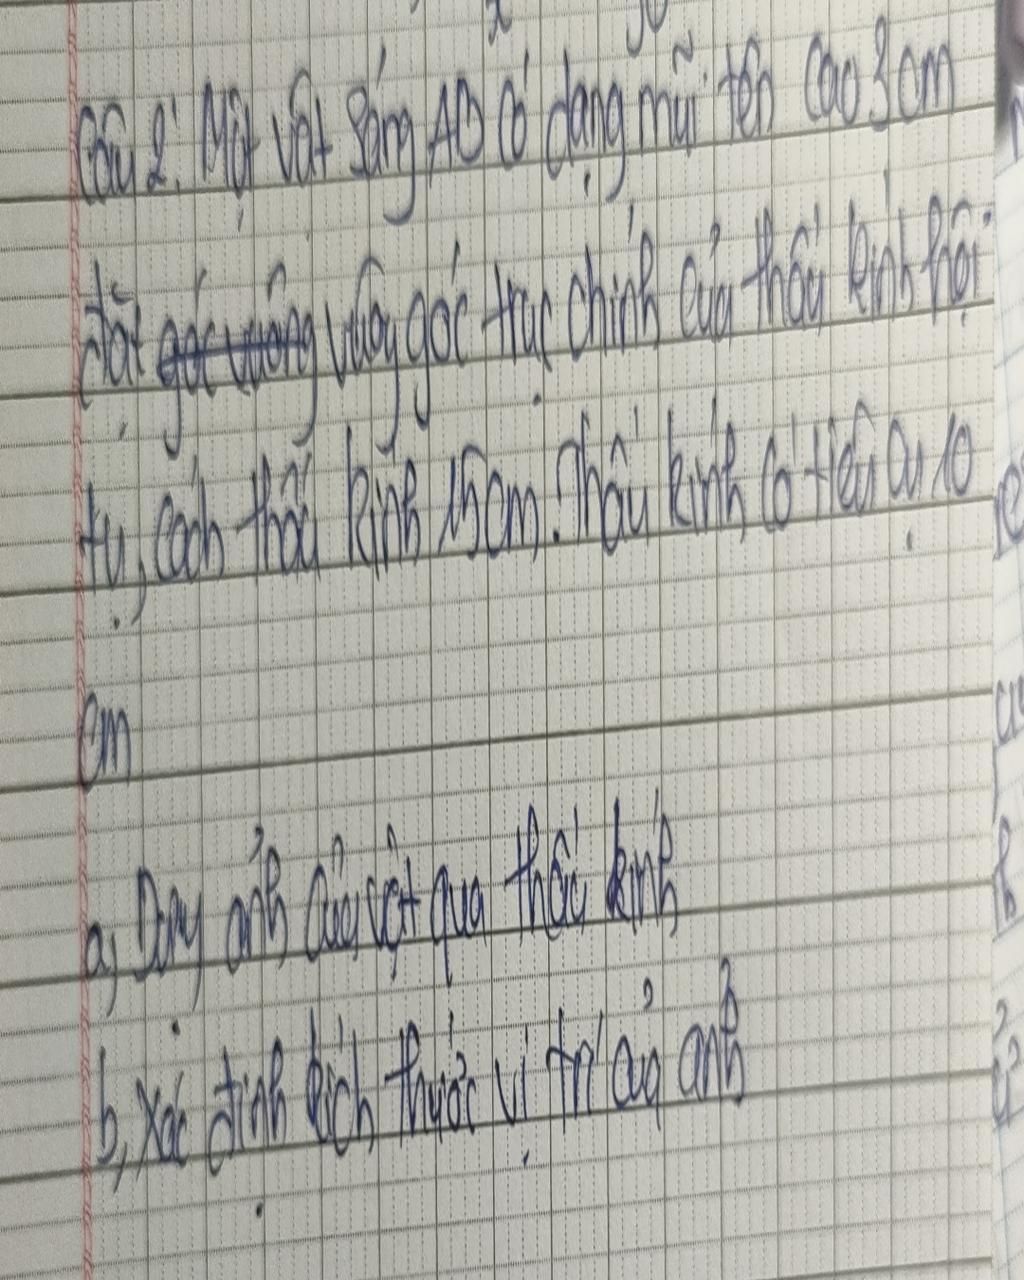 Câu 2: Một vật sáng AB có dạng mũi tên cao 3 cm
đặt góc vuông vuông góc trục chính của thấu kính hội
tụ, cách thấu kính 15cm. Thấu kính có tiêu cự 10
cm
a, Dựng ảnh của vật qua thấu kính
b, Xác định kích thước vị trí của ảnh